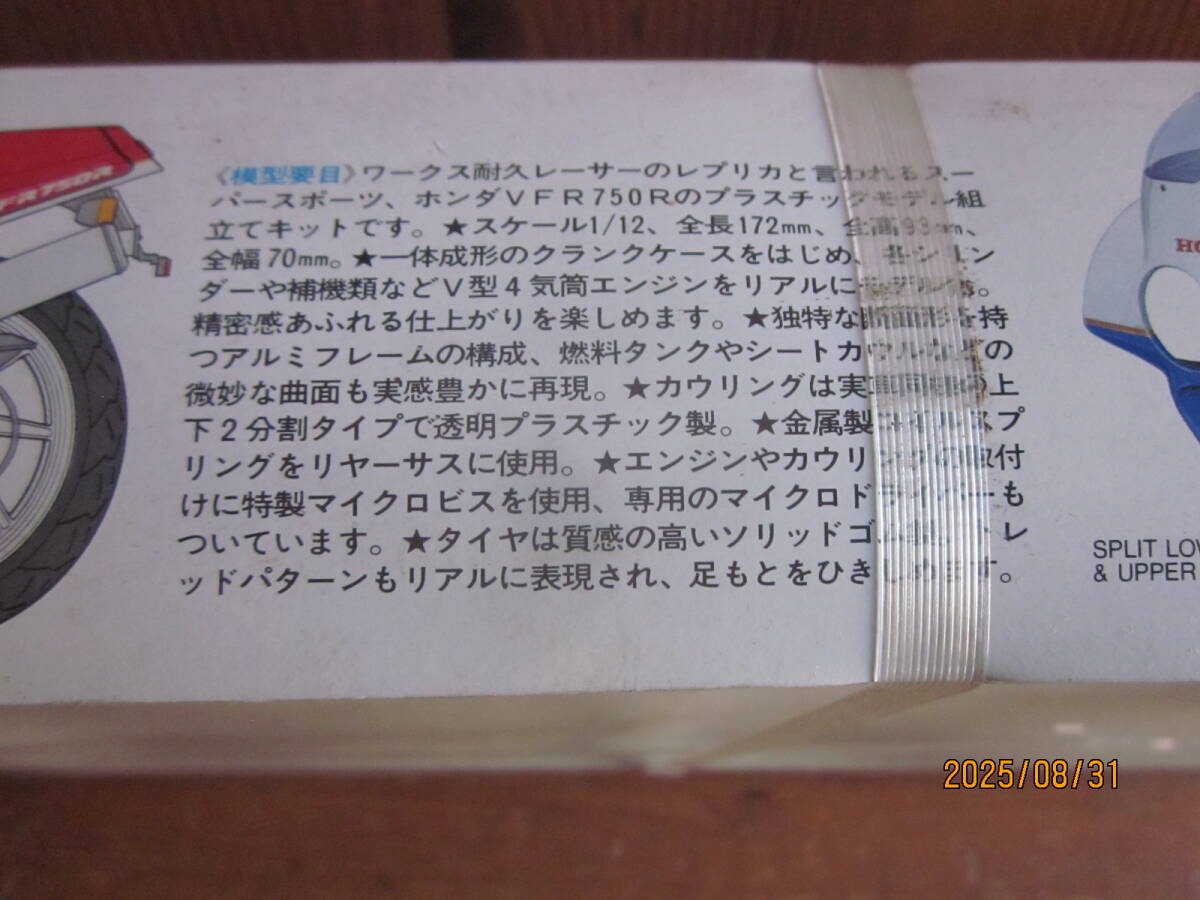 FR750R
《模型要目》ワークス耐久レーサーのレプリカと言われるスー
パースポーツ、ホンダVFR750Rのプラスチックモデル組
立てキットです。★スケール1/12、全長172mm、全高93mm、
全幅70mm。★一体成形のクランクケースをはじめ、各シリン
ダーや補機類などV型4気筒エンジンをリアルにモデル化。
精密感あふれる仕上がりを楽しめます。★独特な断面形を持
つアルミフレームの構成、燃料タンクやシートカウルなどの
微妙な曲面も実感豊かに再現。★カウリングは実車同様の上
下2分割タイプで透明プラスチック製。★金属製コイルスプ
リングをリヤーサスに使用。★エンジンやカウリングの取付
けに特製マイクロビスを使用、専用のマイクロドライバーも
ついています。★タイヤは質感の高いソリッドゴム製。トレ
ッドパターンもリアルに表現され、足もとをひきしめます。
HO
SPLIT LOW
& UPPER
2025/08/31